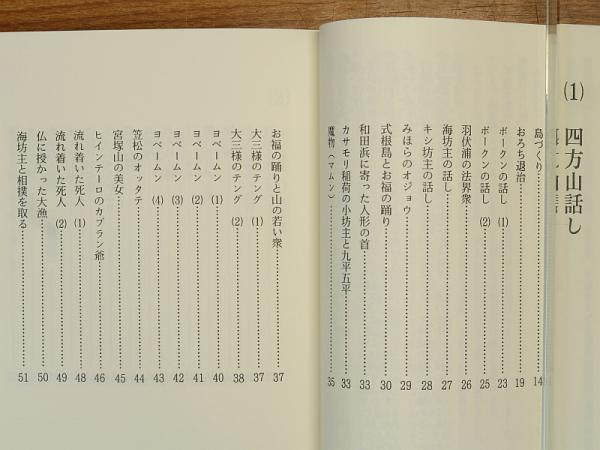 (1) 四方山話し
島づくり 14
おろち退治 19
ボークンの話し (1) 23
ボークンの話し (2) 25
羽伏浦の法界衆 26
海坊主の話し 27
キシ坊主の話し 28
みほらのオジョウ 29
式根島とお福の踊り 30
和田浜に寄った人形の首 33
カサモリ稲荷の小坊主と九平五平 33
魔物（マムン） 35
お福の踊りと山の若い衆 37
大三様のテング (1) 37
大三様のテング (2) 38
ヨベームン (1) 40
ヨベームン (2) 41
ヨベームン (3) 42
ヨベームン (4) 43
笠松のオッタテ 44
宮塚山の美女 45
ヒインテーロのカブラン爺 46
流れ着いた死人 (1) 48
流れ着いた死人 (2) 49
仏に授かった大漁 50
海坊主と相撲を取る 51